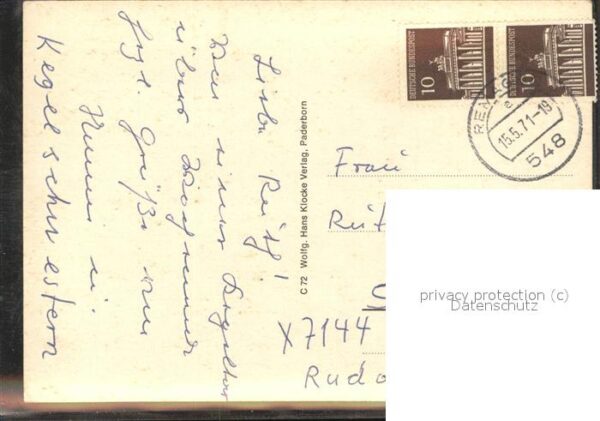 Liebe Ruth!
Von einer
über
herzl. Grüße von
Kegelschwestern
C 72 Wolfg. Hans Klocke Verlag, Paderborn
DEUTSCHE BUNDESPOST
10
DEUTSCHE BUNDESPOST
10
REM
e
15.5.71-19
548
Frau
Rut
X7144
Rudo
privacy protection (c)
Datenschutz